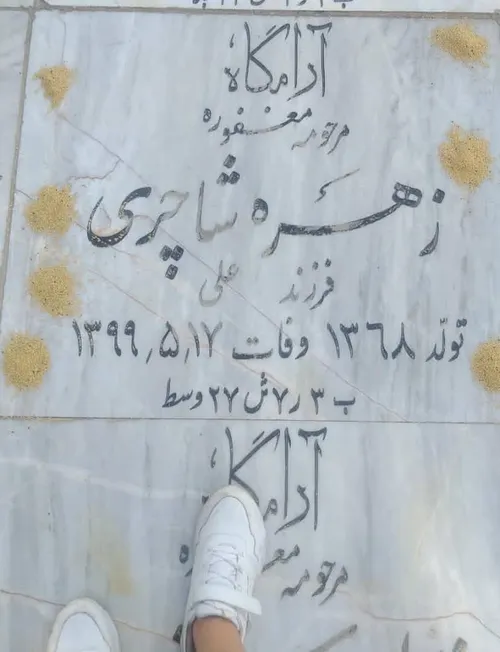 آرامگاه
مرحومه مغفوره
زهره شاچری
فرزند علی
تولد ۱۳۶۸ وفات ۱۳۹۹٫۵٫۱۷
ب ۳ ر ۷ ش ۲۷ وسط
آرامگاه
مرحومه